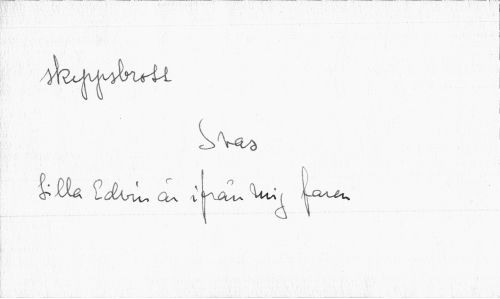 skeppsbrott
Svas
Lilla Edvin är ifrån mig faren